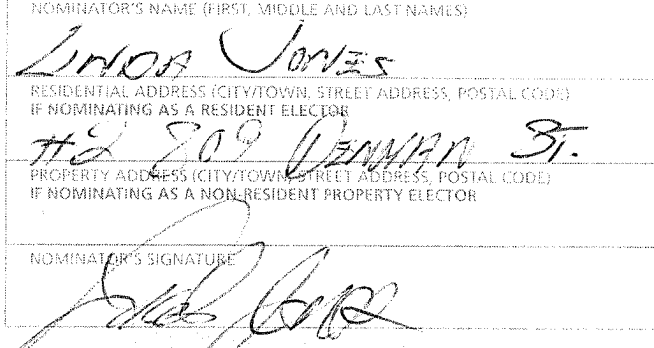 NOMINATOR'S NAME (FIRST, MIDDLE AND LAST NAMES)
LINDA JONES
RESIDENTIAL ADDRESS (CITY/TOWN, STREET ADDRESS, POSTAL CODE)
IF NOMINATING AS A RESIDENT ELECTOR
#2 809 DENMAN ST.
PROPERTY ADDRESS (CITY/TOWN, STREET ADDRESS, POSTAL CODE)
IF NOMINATING AS A NON-RESIDENT PROPERTY ELECTOR
NOMINATOR'S SIGNATURE
Linda Jones